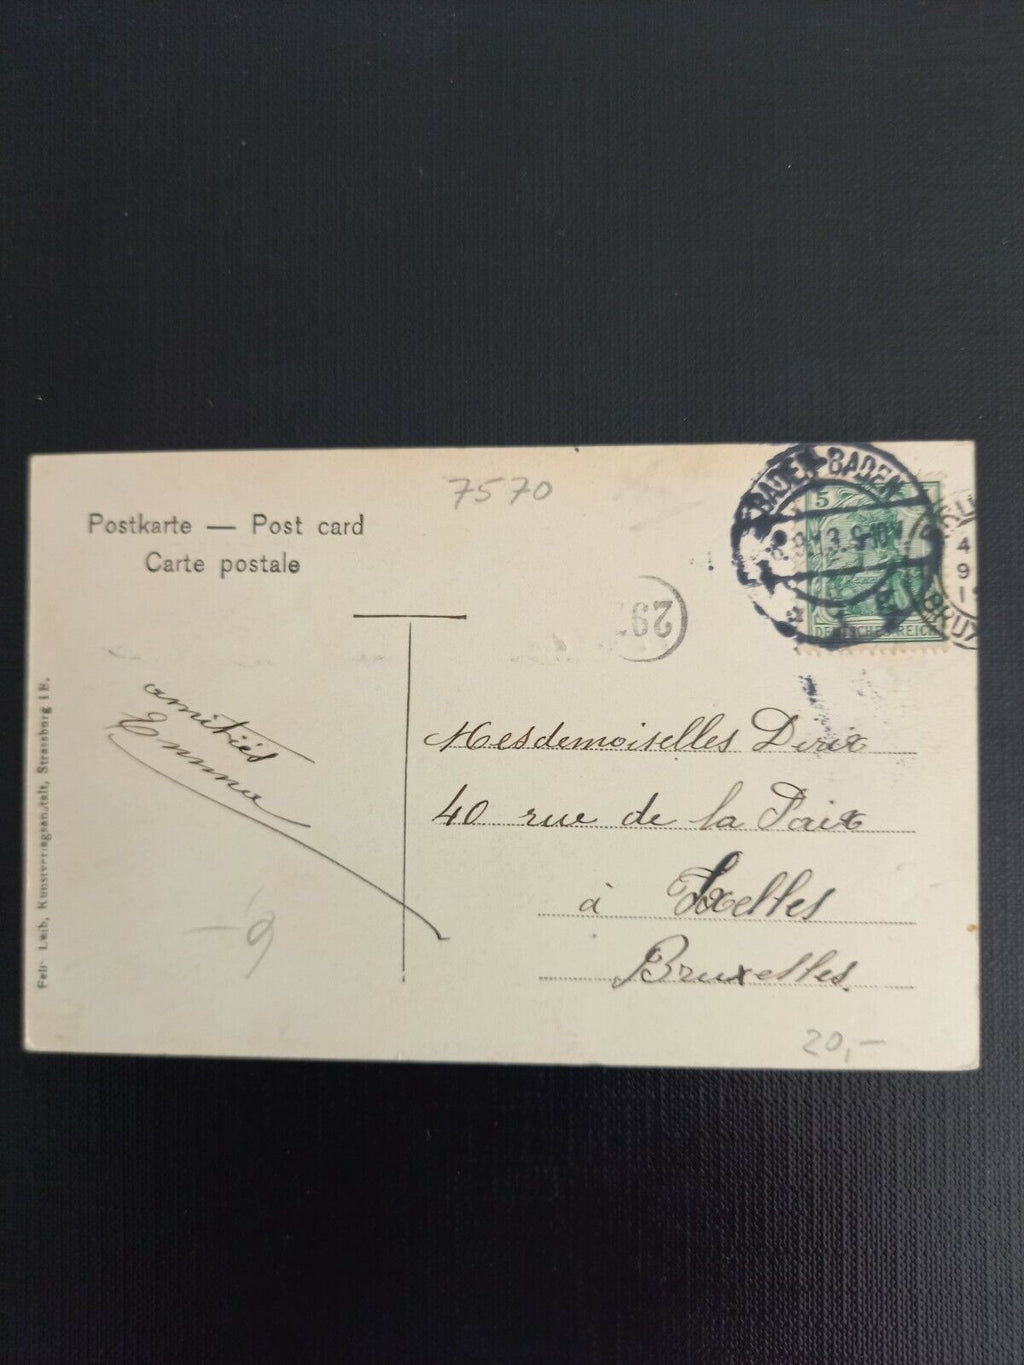 7570
Postkarte — Post card
Carte postale
BADEN-BADEN
.9.13.9-10V
5
DEUTSCHES REICH
4
9
BRUX
29
amitiés
Emma
Mesdemoiselles Dirix
40 rue de la Paix
à Ixelles
Bruxelles.
20,-
-9
Kunstverlagsanstalt, Strassburg i E.